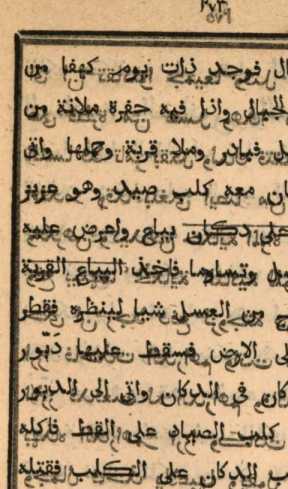 ٢٧٣
ال فوجد ذات يوم كهفا من
الجبال واذا فيه حفرة ملانة من
فبادر وملا قربة وحملها واتى
معه كلب صيد وهو عزيز
على دكان بياع واعرض عليه
وتساوما فاخذ البياع القربة
من العسل شيا لينظره فقطر
الارض فسقط عليها دبّور
كان في الدكان واتى الى الدبور
كلب الصياد على القط فاكله
الدكان على الكلب فقتله